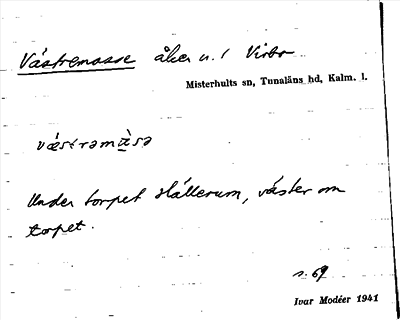 Västremosse åker n. / Virbo
Misterhults sn, Tunaläns hd, Kalm. l.
västrəmàsə
Under torpet Hällerum, väster om
torpet.
s. 69
Ivar Modéer 1941